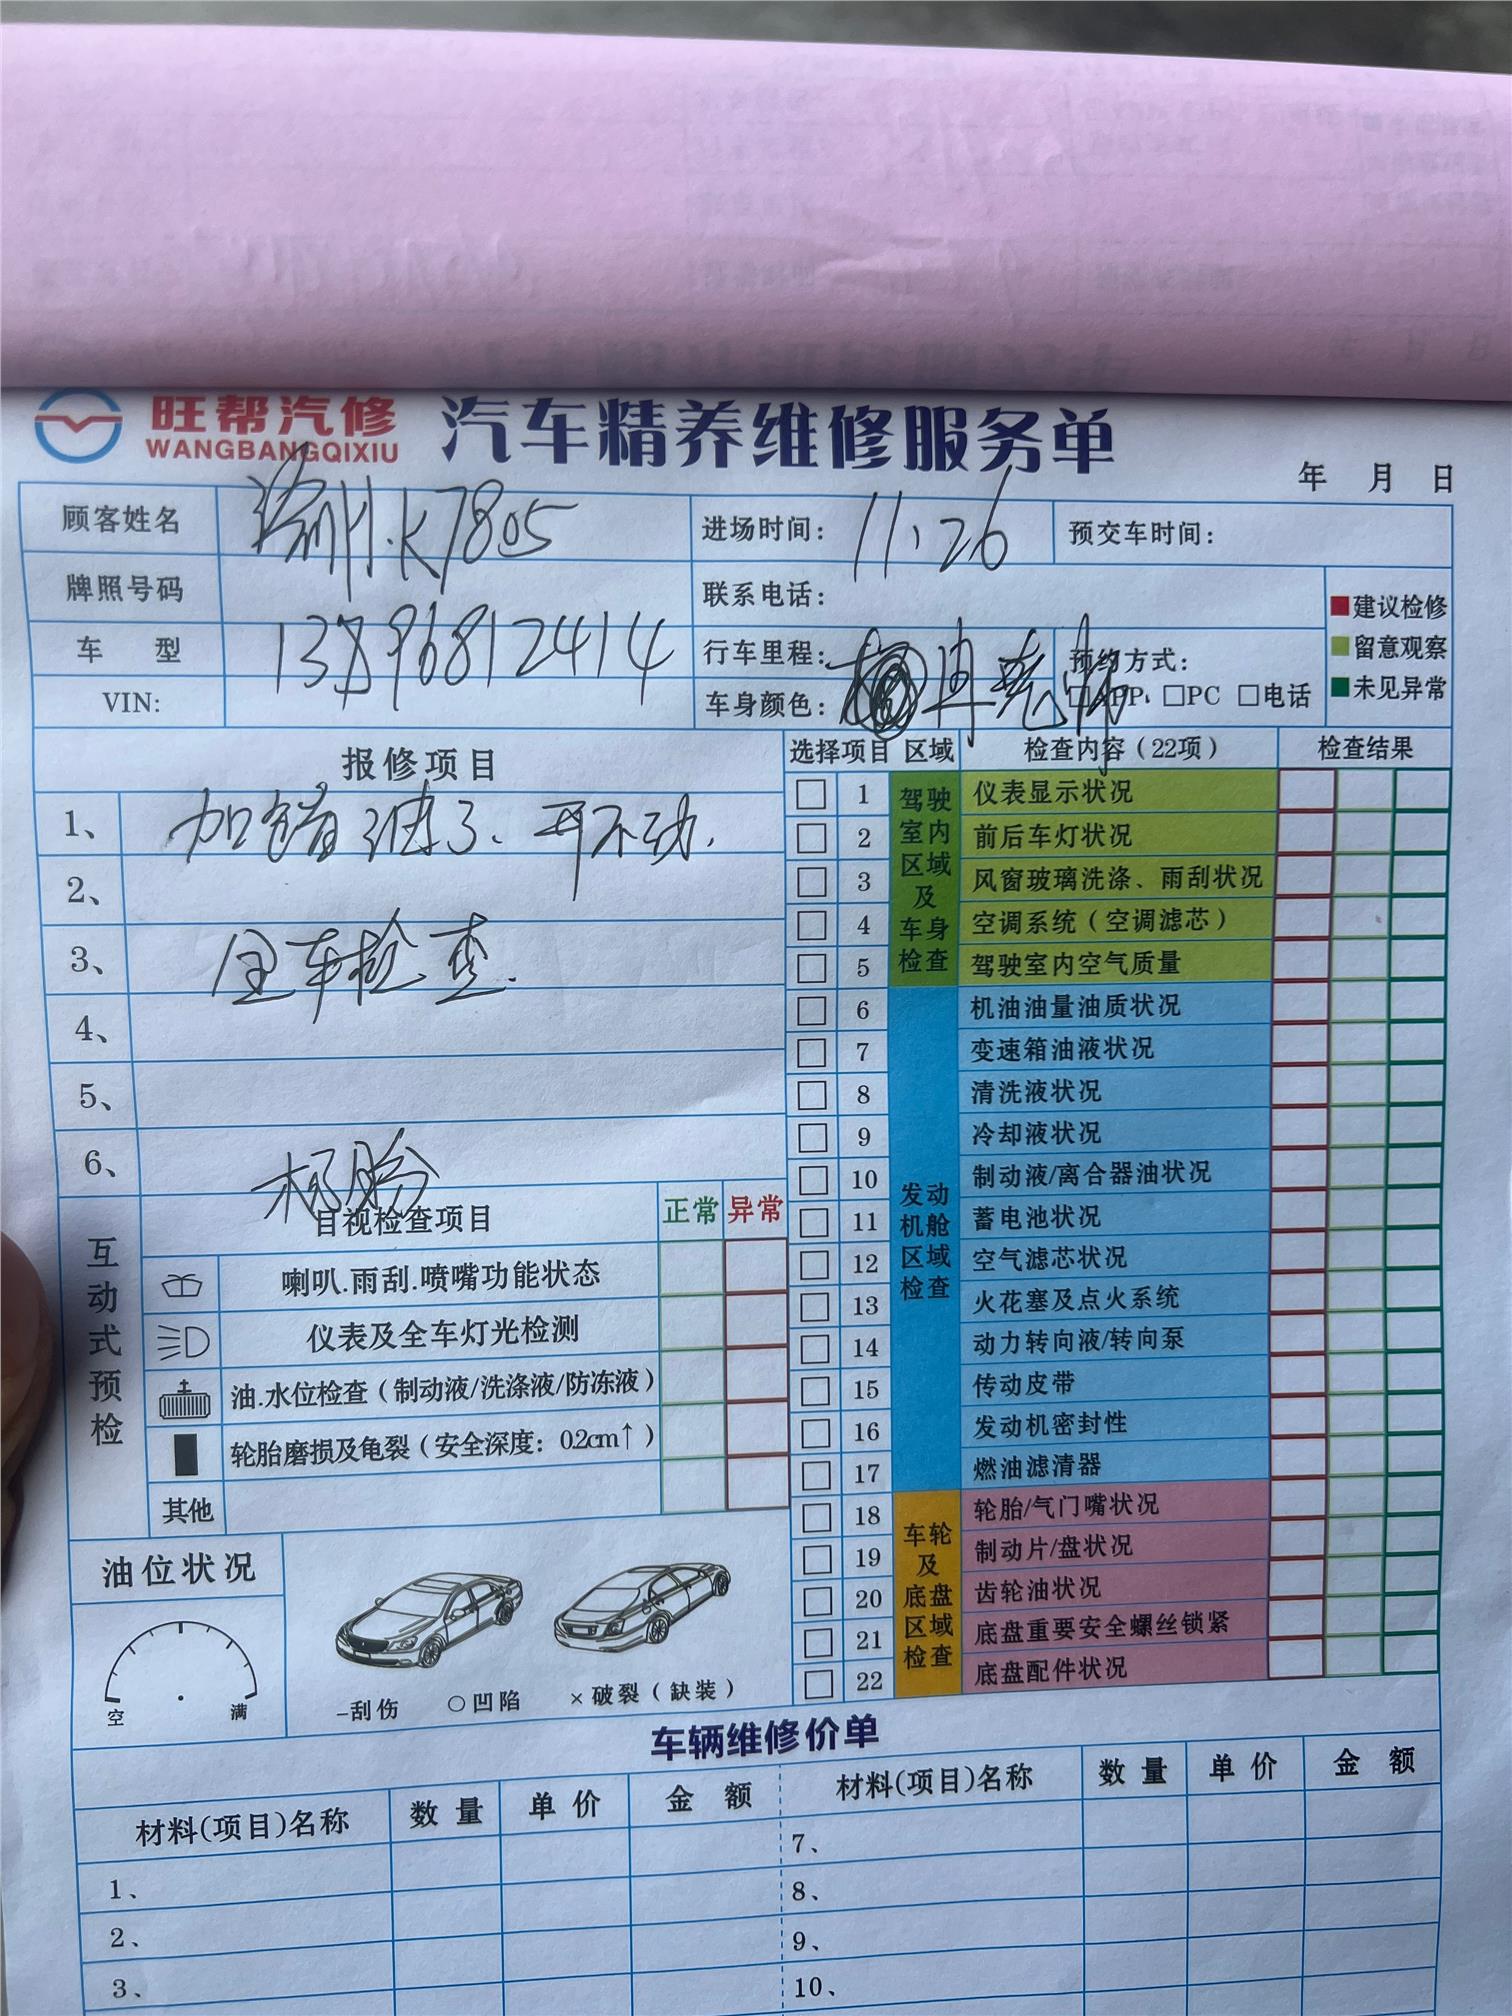 旺帮汽修
WANGBANGQIXIU
汽车精养维修服务单
年 月 日
顾客姓名 渝A.K7805 进场时间: 11.26 预交车时间:
牌照号码 联系电话:
建议检修
留意观察
未见异常
车 型 13896812414 行车里程: 预约方式:
VIN: 车身颜色: 冉 □APP、□PC □电话
报修项目
1、 加错油了、开不动.
2、
3、 全车检查.
4、
5、
6、
选择项目 区域 检查内容(22项) 检查结果
驾驶室内区域及车身检查
1 仪表显示状况
2 前后车灯状况
3 风窗玻璃洗涤、雨刮状况
4 空调系统(空调滤芯)
5 驾驶室内空气质量
发动机舱区域检查
6 机油油量油质状况
7 变速箱油液状况
8 清洗液状况
9 冷却液状况
10 制动液/离合器油状况
11 蓄电池状况
12 空气滤芯状况
13 火花塞及点火系统
14 动力转向液/转向泵
15 传动皮带
16 发动机密封性
17 燃油滤清器
车轮及底盘区域检查
18 轮胎/气门嘴状况
19 制动片/盘状况
20 齿轮油状况
21 底盘重要安全螺丝锁紧
22 底盘配件状况
互动式预检
目视检查项目 正常 异常
喇叭.雨刮.喷嘴功能状态
仪表及全车灯光检测
油.水位检查(制动液/洗涤液/防冻液)
轮胎磨损及龟裂(安全深度: 0.2cm↑)
其他
油位状况
空 满
–刮伤 ○凹陷 ×破裂(缺装)
车辆维修价单
材料(项目)名称 数量 单价 金额 材料(项目)名称 数量 单价 金额
1、 7、
2、 8、
3、 9、
10、